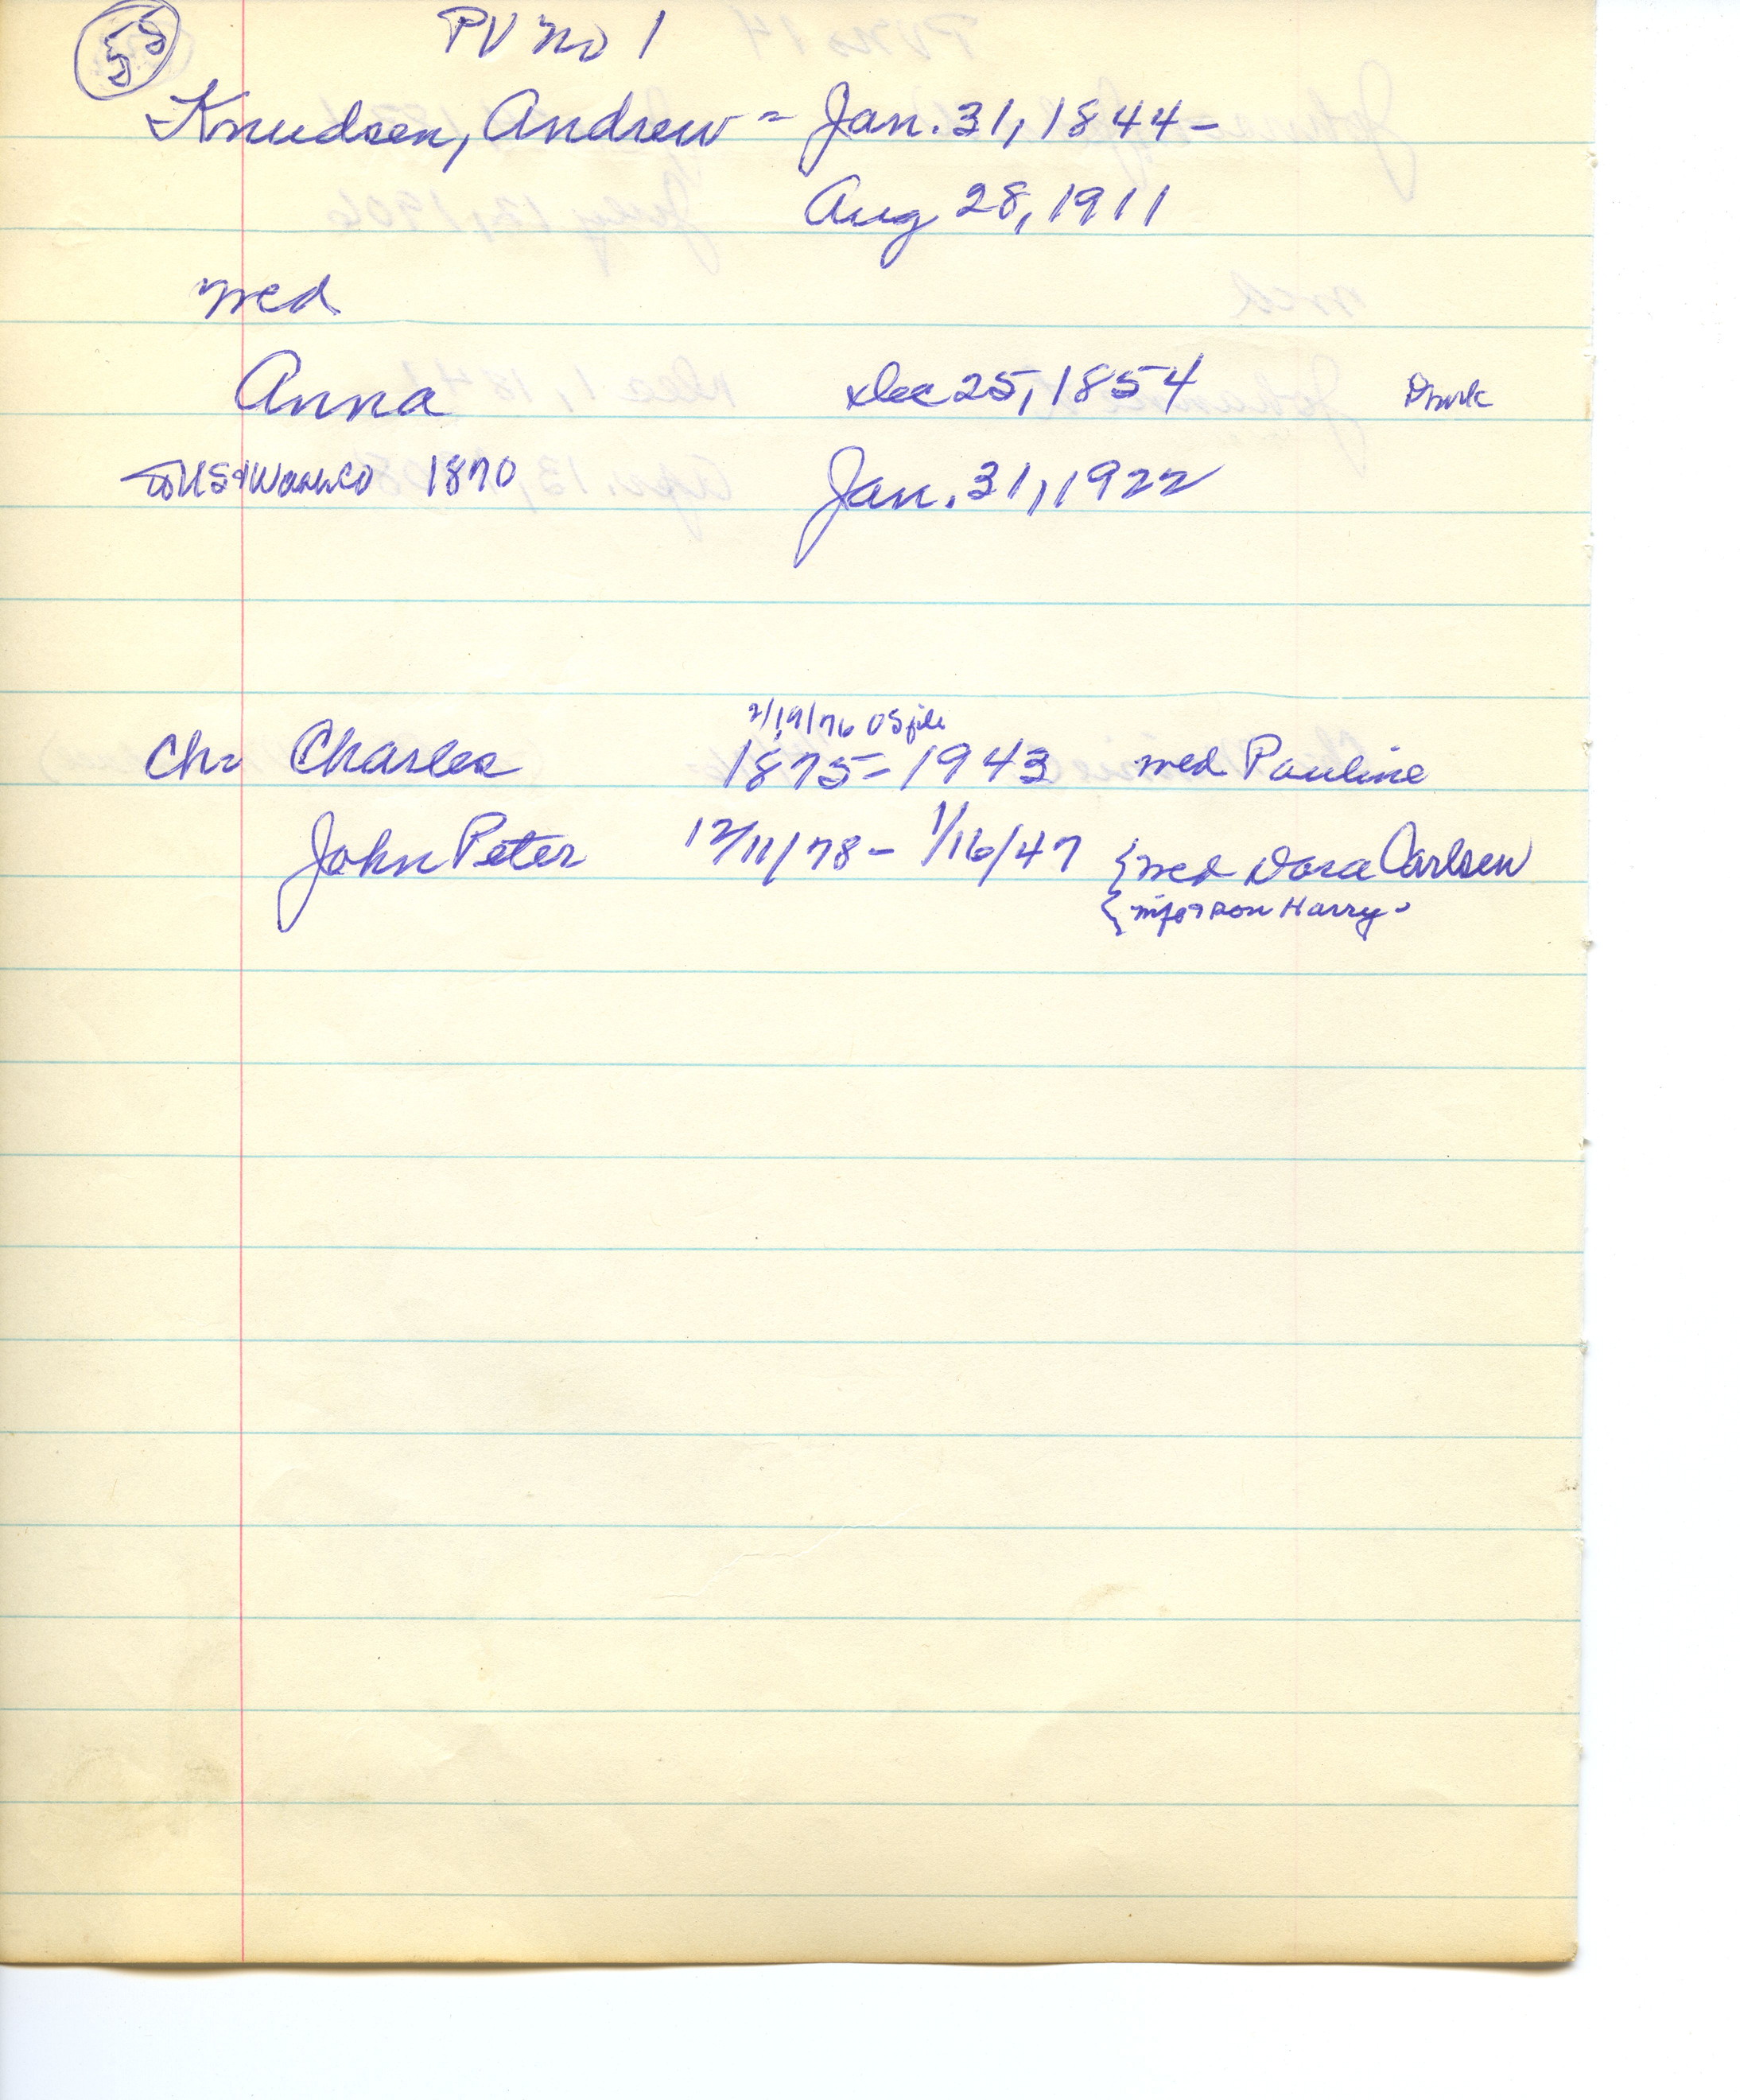 58
PV no 1
Knudsen, Andrew - Jan. 31, 1844 -
Aug 28, 1911
med
Anna Dec 25, 1854 Dmrk
to US & Wash Co 1870 Jan. 31, 1922
2/19/76 OS file
Ch: Charles 1875 - 1943 med Pauline
John Peter 12/11/78 - 1/16/47 { med Dora Carlsen
{ son Harry